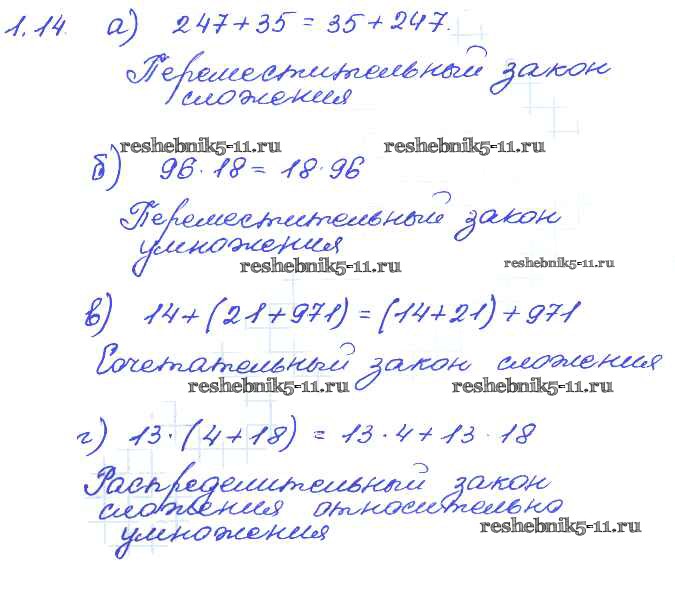 1.14. а) 247+35 = 35+247.
Переместительный закон
сложения
reshebnik5-11.ru reshebnik5-11.ru
б) 96·18 = 18·96
Переместительный закон
умножения
reshebnik5-11.ru reshebnik5-11.ru
в) 14+(21+971)=(14+21)+971
Сочетательный закон сложения
reshebnik5-11.ru reshebnik5-11.ru
г) 13·(4+18) = 13·4+13·18
Распределительный закон
сложения относительно
reshebnik5-11.ru
умножения